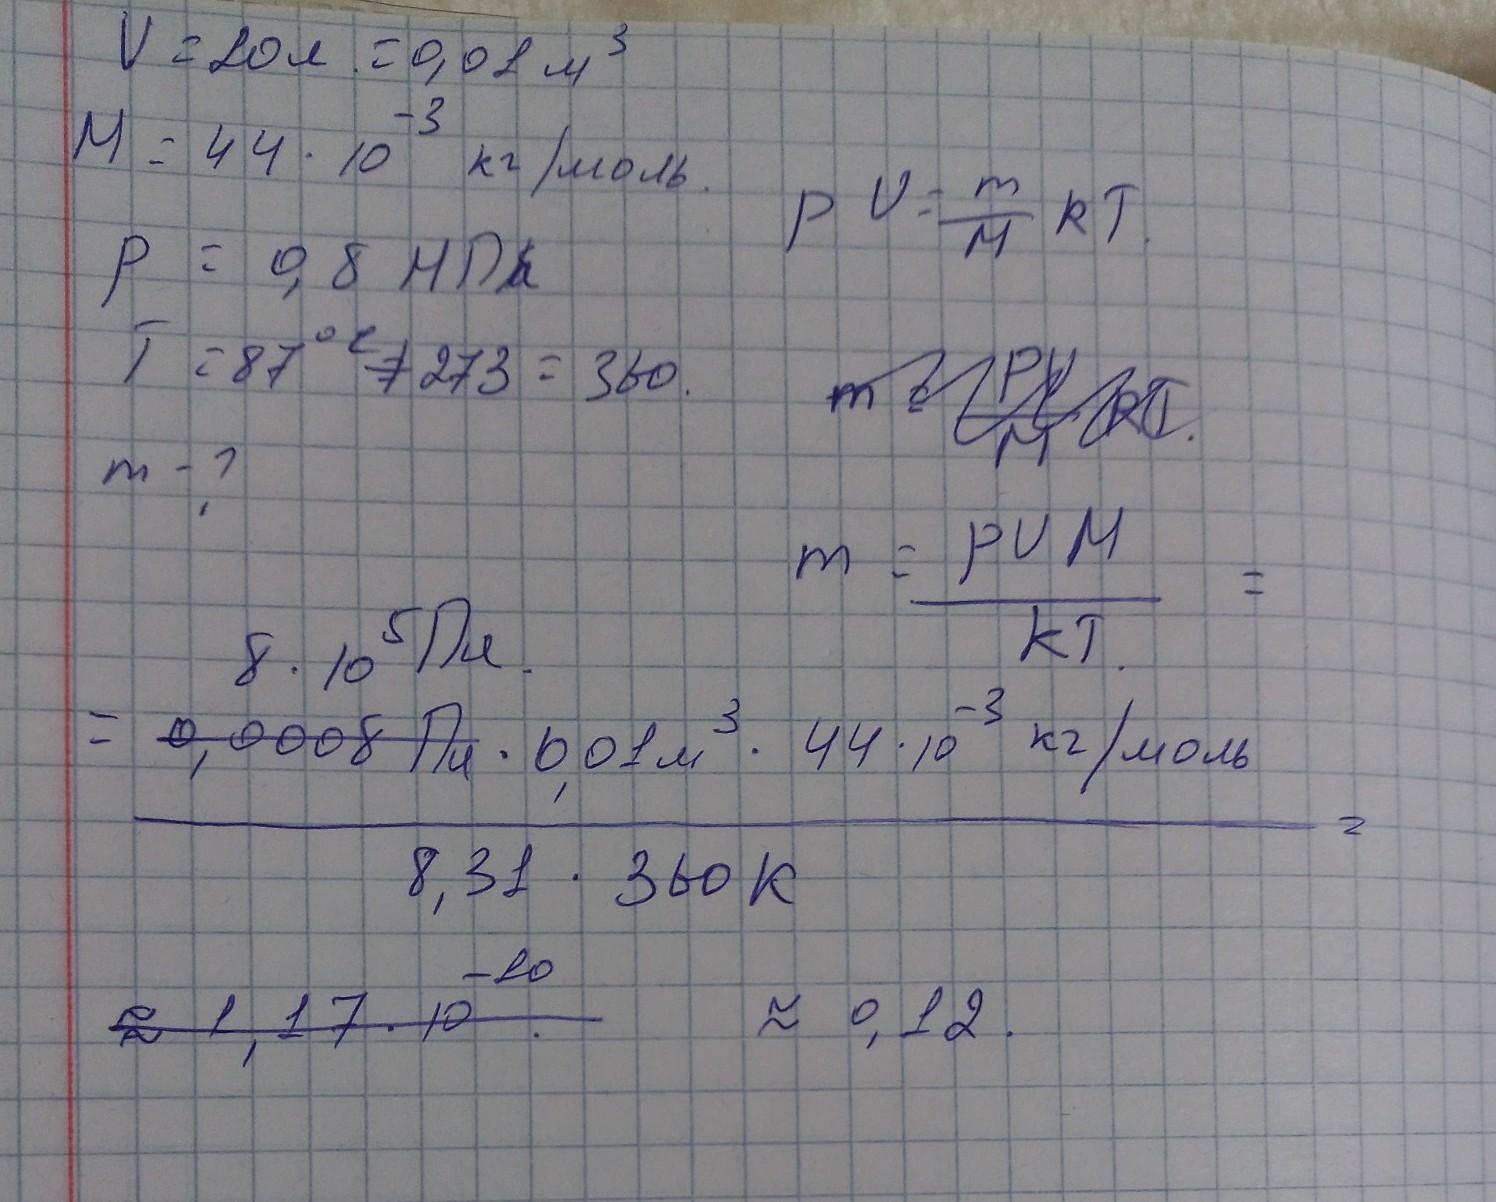 V = 10л. = 0,01 м³
M = 44 · 10⁻³ кг/моль.
P = 0,8 МПа
T = 87°C + 273 = 360.
m - ?
pV = m/M RT.
m = PV/M RT.
m = pVM / RT. =
8 · 10⁵ Па.
= 0,0008 Па · 0,01 м³ · 44 · 10⁻³ кг/моль
8,31 · 360 К =
≈ 1,17 · 10⁻¹⁰. ≈ 0,12.